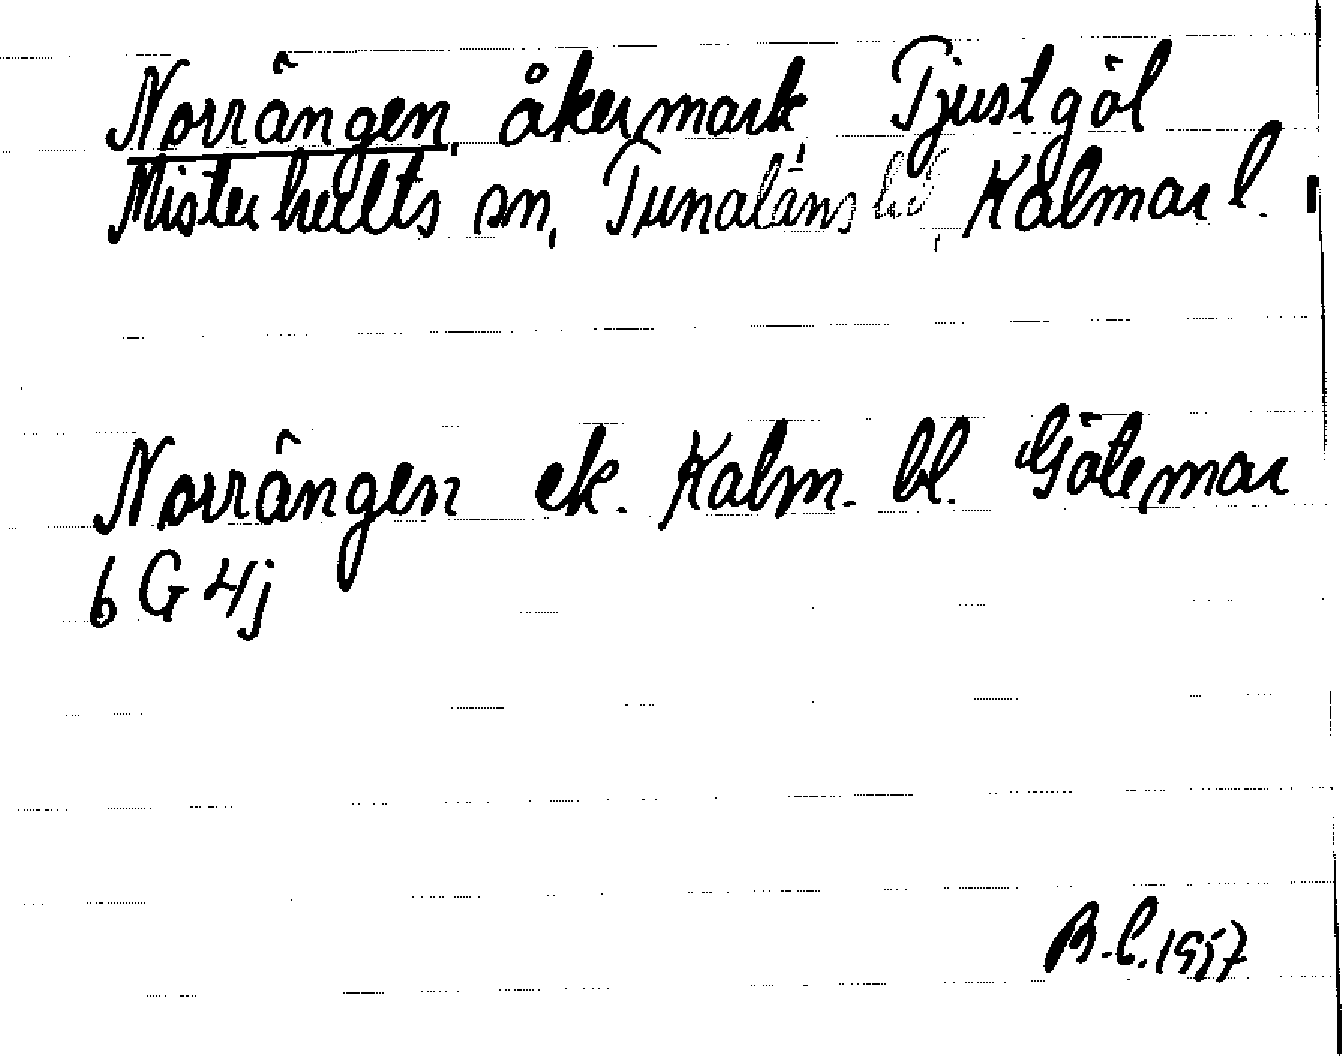 Norrängen, åkermark, Tjustgöl
Misterhults sn, Tunaläns hd, Kalmar l.
Norrängen ek. Kalm. bl. Götemar
6 G 4j
B.L. 1957